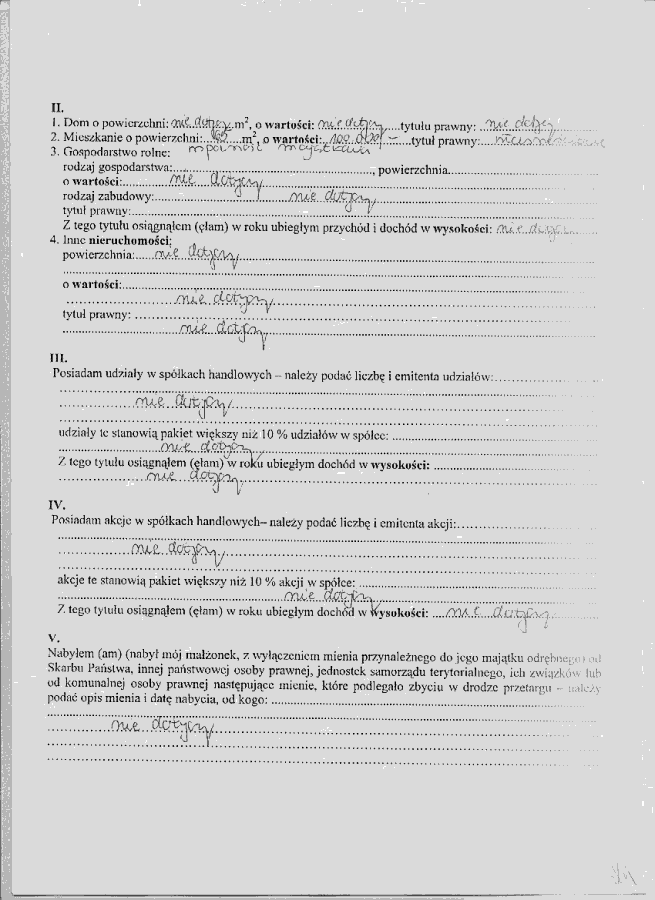 II.
1. Dom o powierzchni: nie dotyczy m², o wartości: nie dotyczy tytułu prawny: nie dotyczy
2. Mieszkanie o powierzchni: m², o wartości: 100 000,- tytuł prawny:
wspólność małżeńska
3. Gospodarstwo rolne:
rodzaj gospodarstwa: , powierzchnia
o wartości: nie dotyczy
rodzaj zabudowy: nie dotyczy
tytuł prawny:
Z tego tytułu osiągnąłem (ęłam) w roku ubiegłym przychód i dochód w wysokości: nie dotyczy
4. Inne nieruchomości:
powierzchnia: nie dotyczy
o wartości:
nie dotyczy
tytuł prawny:
nie dotyczy
III.
Posiadam udziały w spółkach handlowych – należy podać liczbę i emitenta udziałów:
nie dotyczy
udziały te stanowią pakiet większy niż 10 % udziałów w spółce:
nie dotyczy
Z tego tytułu osiągnąłem (ęłam) w roku ubiegłym dochód w wysokości:
nie dotyczy
IV.
Posiadam akcje w spółkach handlowych– należy podać liczbę i emitenta akcji:
nie dotyczy
akcje te stanowią pakiet większy niż 10 % akcji w spółce:
nie dotyczy
Z tego tytułu osiągnąłem (ęłam) w roku ubiegłym dochód w wysokości: nie dotyczy
V.
Nabyłem (am) (nabył mój małżonek, z wyłączeniem mienia przynależnego do jego majątku odrębnego) od
Skarbu Państwa, innej państwowej osoby prawnej, jednostek samorządu terytorialnego, ich związków lub
od komunalnej osoby prawnej następujące mienie, które podlegało zbyciu w drodze przetargu – należy
podać opis mienia i datę nabycia, od kogo:
nie dotyczy